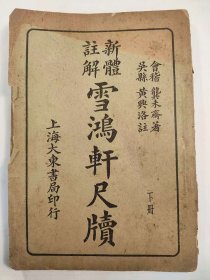 會稽 龔未齋著
吳縣 黃興洛註
新體註解
雪鴻軒尺牘
下册
上海大東書局印行